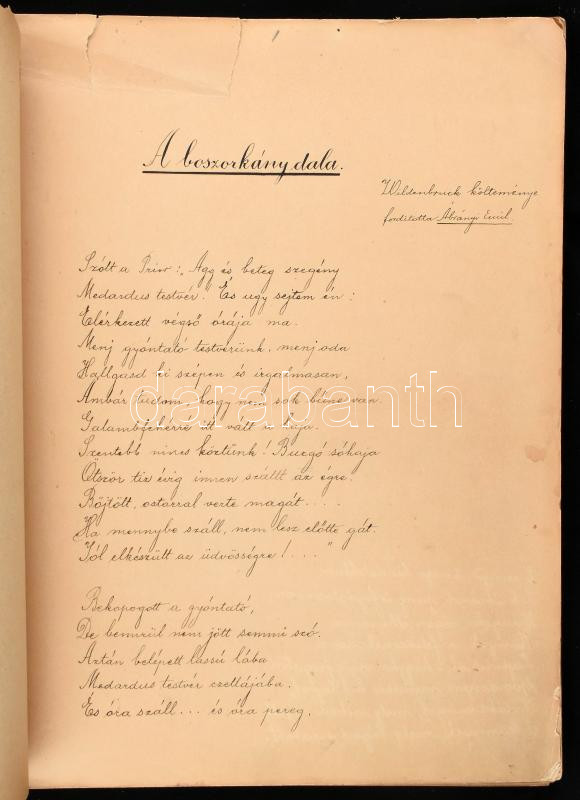 A boszorkány dala.
Wildenbruck költeménye
fordította Ábrányi Emil.
Szólt a Prior: „Agg és beteg szegény
Medardus testvér. És ugy sejtem én:
Elérkezett végső órája ma.
Menj gyóntató testvérünk, menj oda
Hallgasd ki szépen és irgalmasan,
Ambár tudom, hogy nem sok bűne van.
Galambfehérré itt vált a haja.
Szentebb nincs köztünk! Buzgó sóhaja
Ötször tiz évig innen szállt az égre.
Böjtölt, ostorral verte magát....
Ha mennybe száll, nem lesz előtte gát.
Jól elkészült az üdvösségre!...."
Bekopogott a gyóntató,
De benrrül nem jött semmi szó.
Aztán belépett lassú lába
Medardus testvér czellájába.
És óra száll... és óra pereg,
darabanth